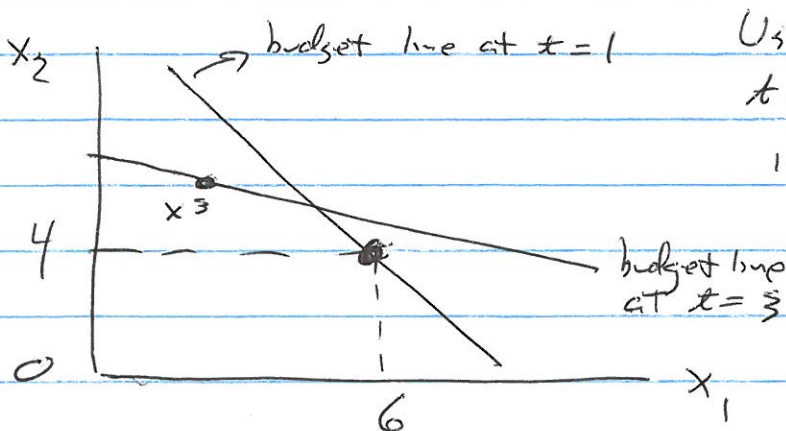 X₂
budget line at t = 1
Us
t
1
x³
4
budget line
at t = 3
0
X₁
6